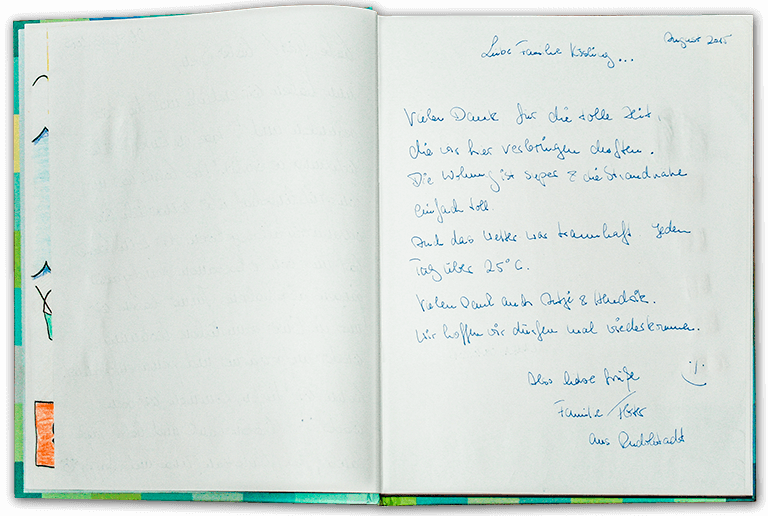 August 2015
Liebe Familie Kissling...
Vielen Dank für die tolle Zeit,
die wir hier verbringen durften.
Die Wohnung ist super & die Strandnähe
einfach toll.
Auch das Wetter war traumhaft jeden
Tag über 25°C.
Vielen Dank auch & Hendrik.
Wir hoffen wir dürfen mal wiederkommen.
Also liebe Grüße
Familie
aus Rudolstadt